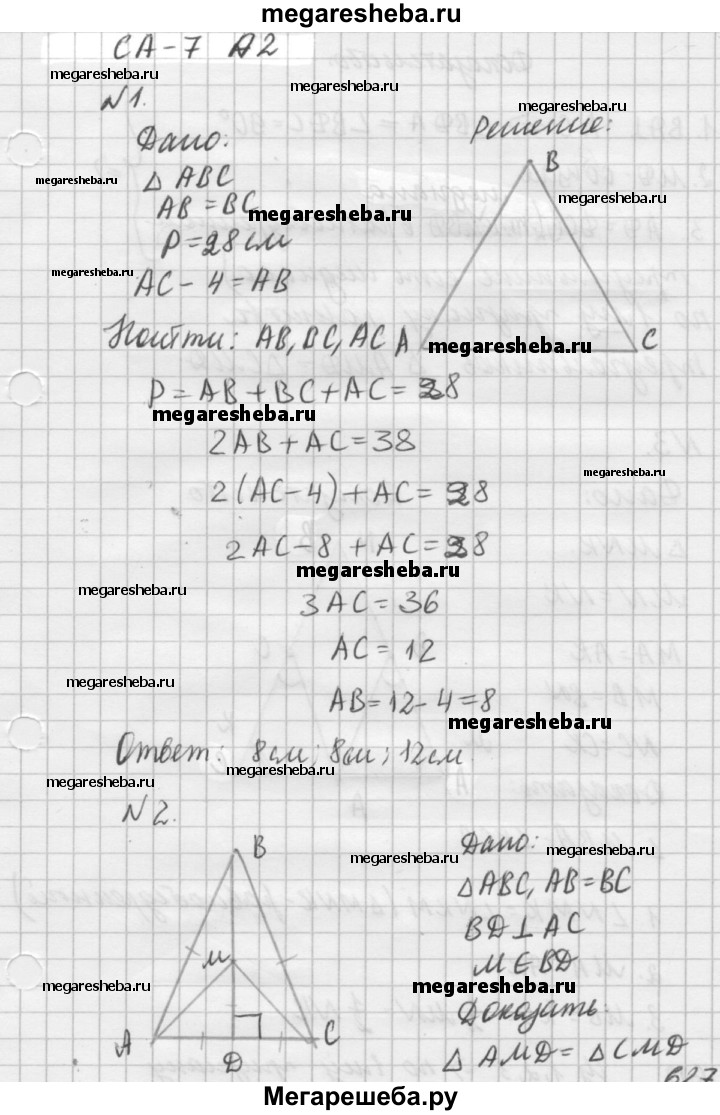 megaresheba.ru
СА-7 А2
megaresheba.ru
megaresheba.ru
№1.
megaresheba.ru
Дано:
Решение:
В
△ ABC
megaresheba.ru
megaresheba.ru
AB = BC
megaresheba.ru
P = 28 см
megaresheba.ru
AC - 4 = AB
Найти: AB, BC, AC
А
megaresheba.ru
С
P = AB + BC + AC = 28
megaresheba.ru
2AB + AC = 38
megaresheba.ru
2(AC-4) + AC = 28
2AC - 8 + AC = 28
megaresheba.ru
megaresheba.ru
3AC = 36
AC = 12
megaresheba.ru
AB = 12 - 4 = 8
megaresheba.ru
Ответ: 8 см; 8 см; 12 см.
megaresheba.ru
megaresheba.ru
№ 2.
В
Дано:
megaresheba.ru
megaresheba.ru
△ ABC, AB = BC
BD ⊥ AC
М
M ∈ BD
megaresheba.ru
megaresheba.ru
Доказать:
megaresheba.ru
А
С
D
△ AMD = △ CMD
627
Мегарешеба.ру